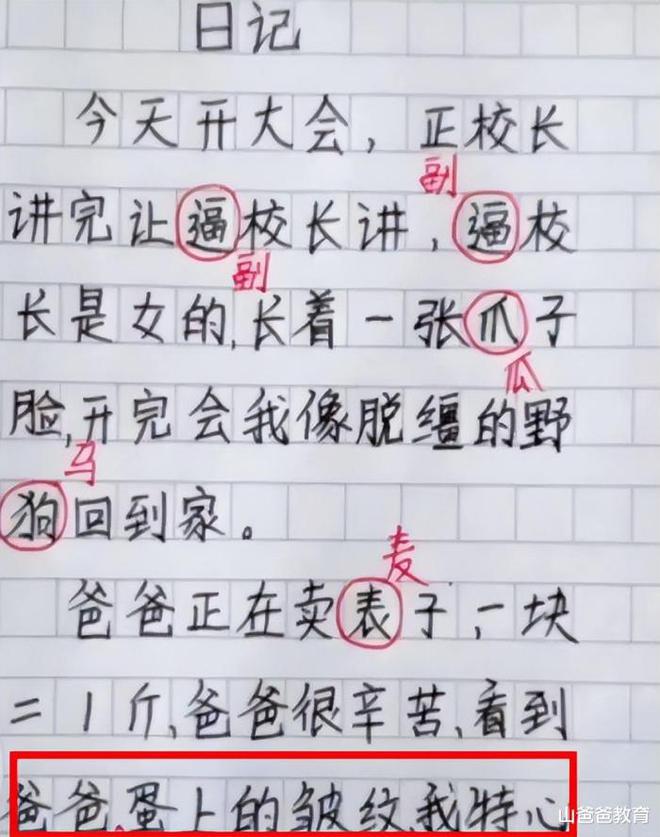 日记
今天开大会，正校长
副
讲完让逼校长讲，逼校
副
长是女的，长着一张爪子
瓜
脸，开完会我像脱缰的野
马
狗回到家。
麦
爸爸正在卖表子，一块
二1斤，爸爸很辛苦，看到
爸爸蛋上的皱纹，我特心
山爸爸教育